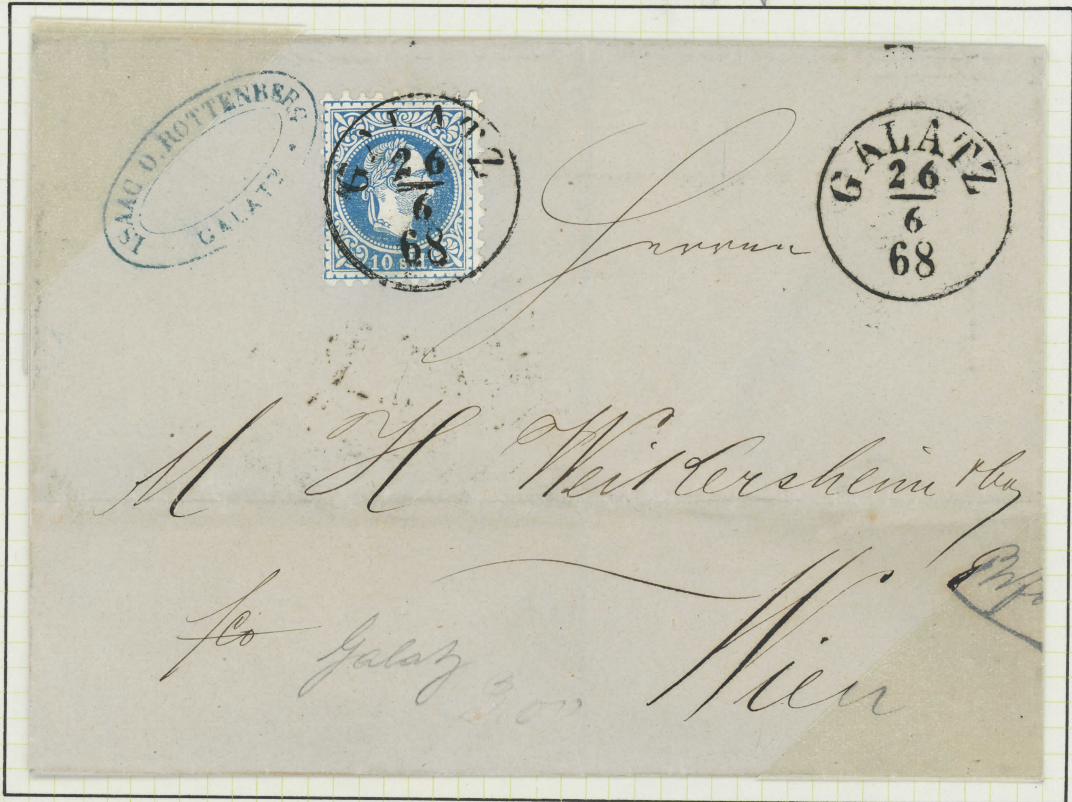 ISAAC O. ROTTENBERG
GALATZ
GALATZ
26
6
68
10 sld.
GALATZ
26
6
68
Herrn
M H Weikersheim & Co
fco
Galatz
Wien